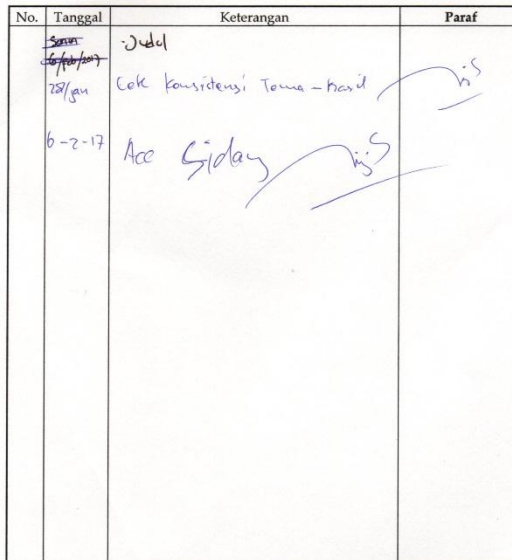 No. Tanggal Keterangan Paraf
Senin
6/Feb/2017 - Judul
28/jan Cek Konsistensi Tema - hasil
6-2-17 Acc Sidang